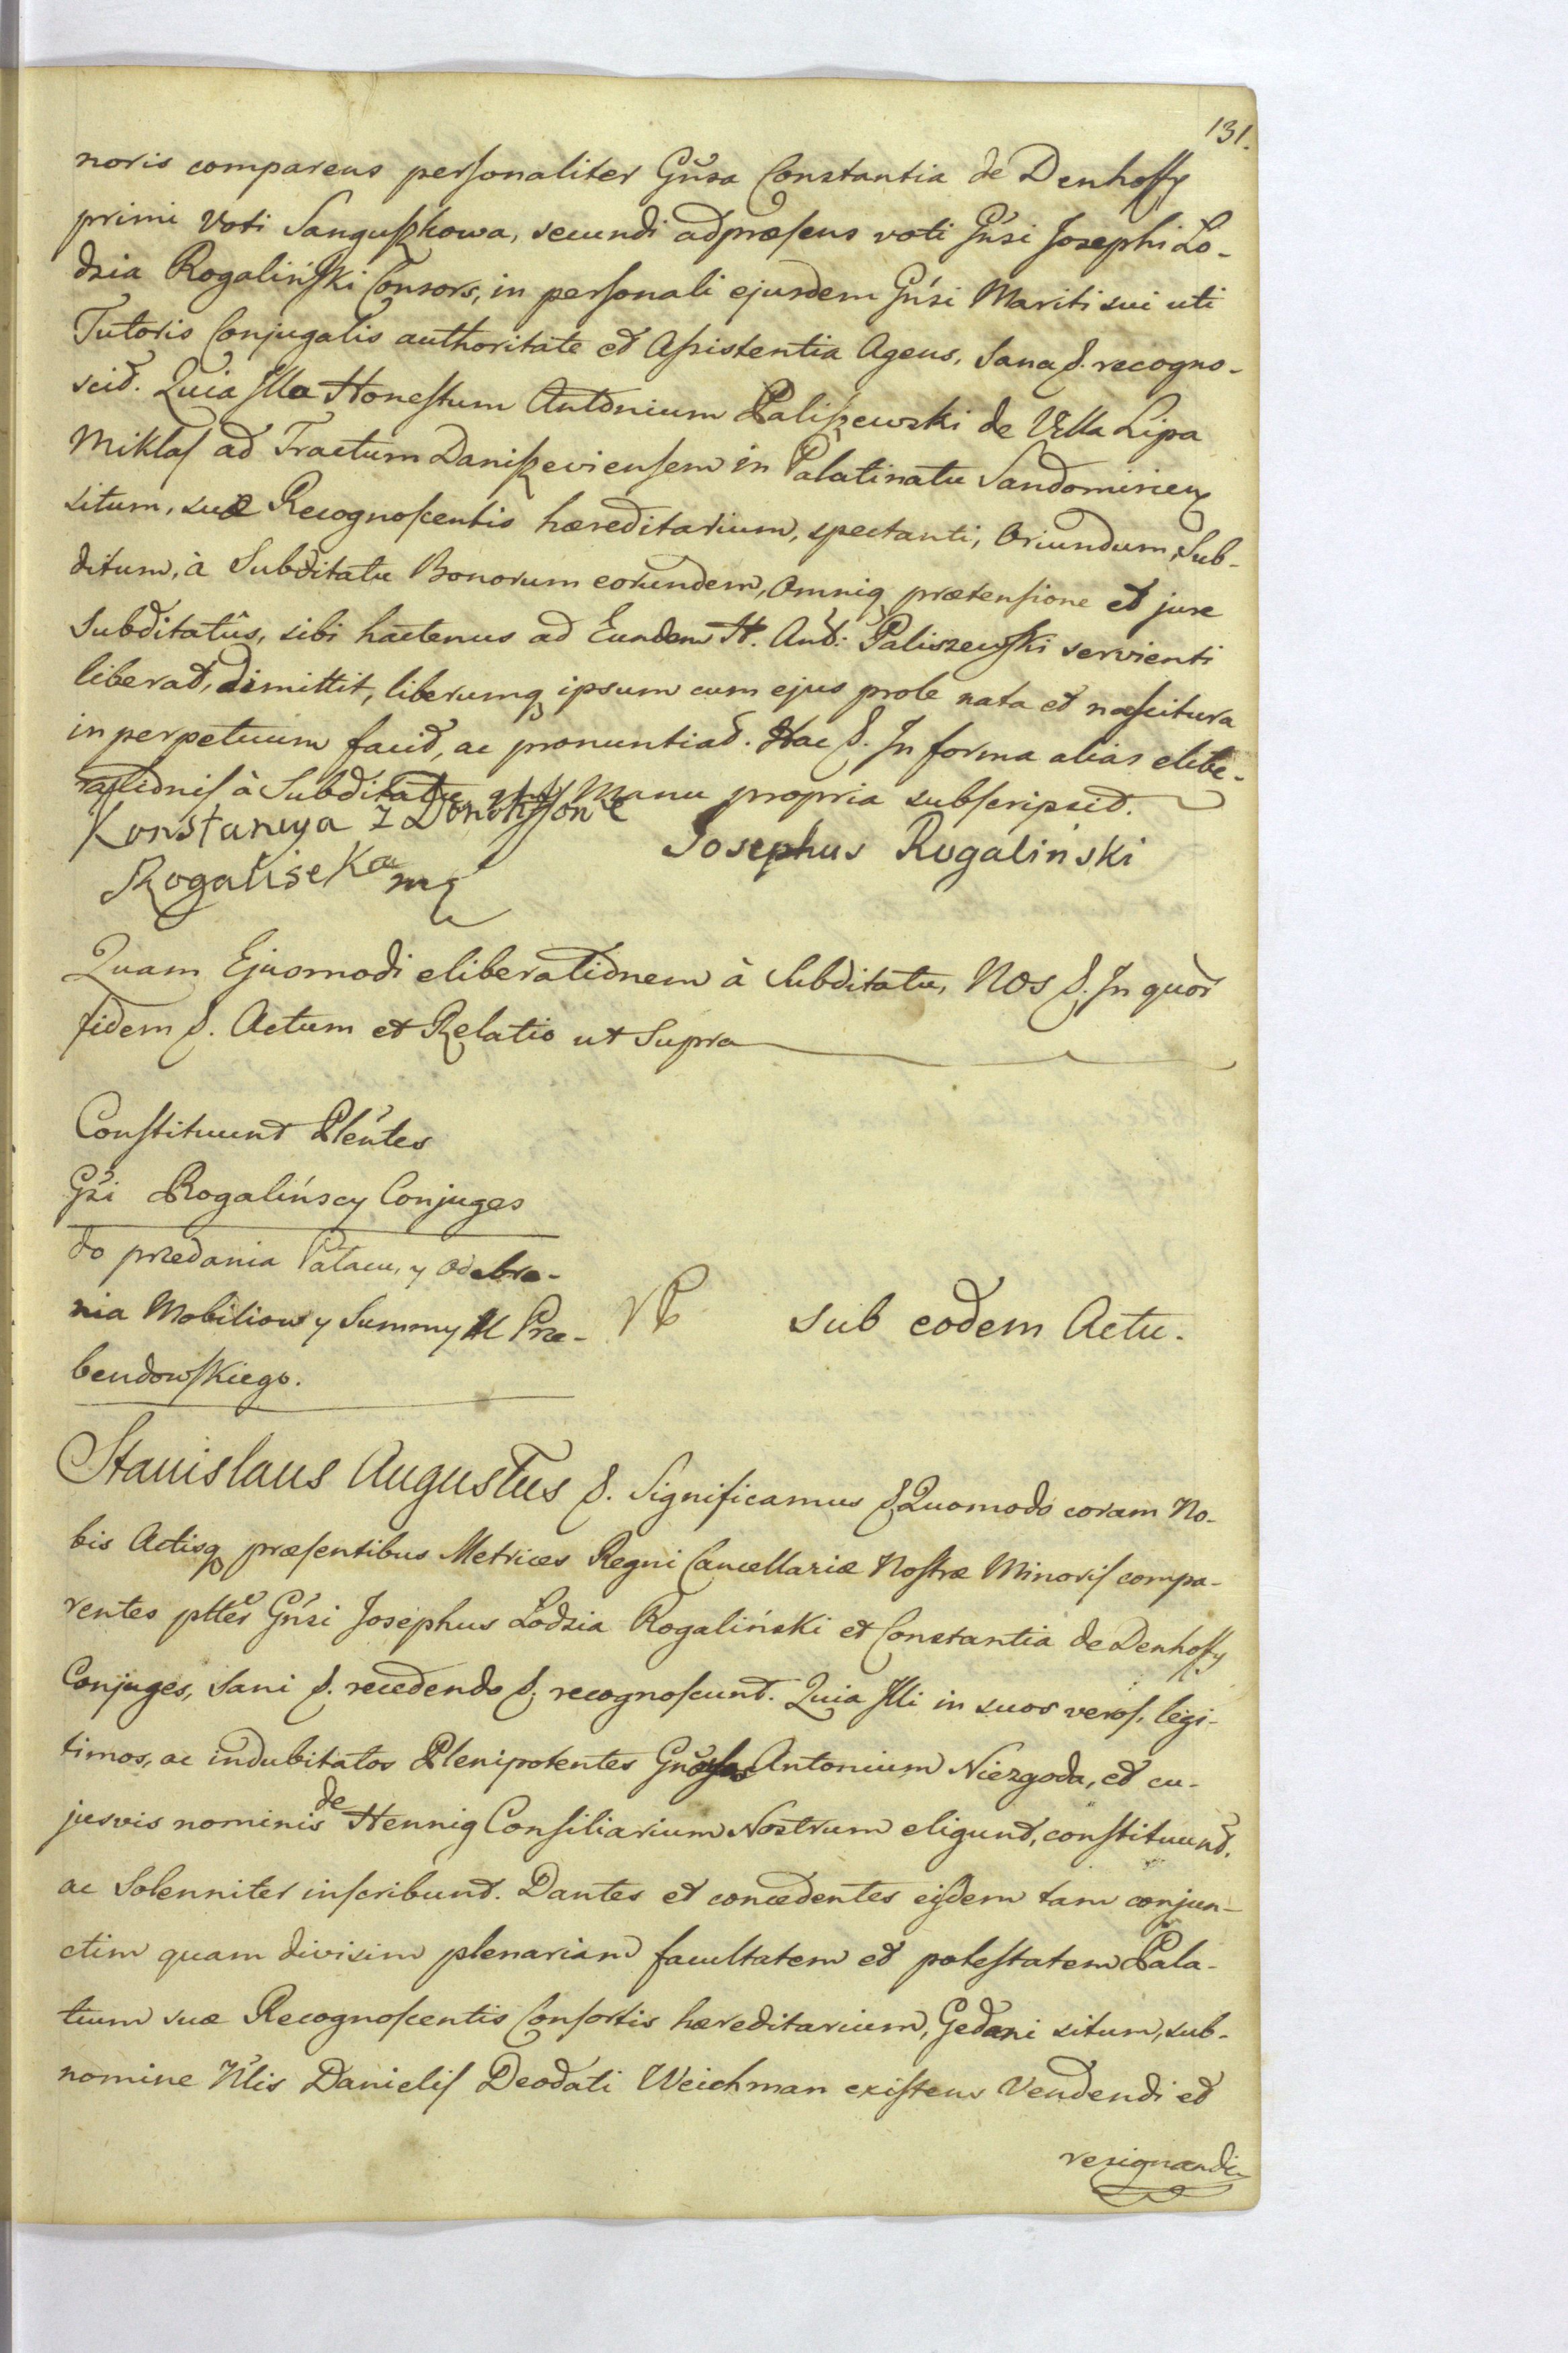 131.
noris comparens personaliter Gńsa Constantia de Denhoffy
primi Voti Sanguszkowa, secundi adpræsens voti Gńsi Josephi Lo-
dzia Rogaliński Consors, in personali ejusdem Gńsi Mariti sui uti
Tutoris Conjugalis authoritate et Assistentia Agens, Sana &. recogno-
scit. Quia Illa Honestum Antonium Paliszewski de Villa Lipa
Miklas ad Tractum Daniszeviensem in Palatinatu Sandomirien
situm, suæ Recognoscentis hæreditarium, spectanti, Oriundum, Sub-
ditum, à Subditatu Bonorum eorundem, omniq prætensione et jure
Subditatûs, sibi hactenus ad Eundem H. Ant: Paliszewski servienti
liberat, dimittit, liberumq ipsum cum ejus prole nata et nascitura
in perpetuum facit, ac pronuntiat. Hac &. In forma alias elibe-
rationis à Subditatu Manu propria subscripsit.
Konstancya z Denhoffow
Rogalińska mp
Josephus Rogaliński
Quam Ejusmodi eliberationem à Subditatu, Nos &. In quor
fidem &. Actum et Relatio ut Supra
Constituunt Pleńtes
Gńsi Rogalińscy Conjuges
do przedania Pałacu, y Odebra-
nia Mobiliow y Summy U Prze-
bendowskiego.
Sub eodem Actu.
Stanislaus Augustus &. Significamus &. Quomodo coram No-
bis Actisq præsentibus Metrices Regni Cancellariæ Nostræ Minoris compa-
rentes ptter Gńsi Josephus Lodzia Rogaliński et Constantia de Denhoffy
Conjuges, Sani &. recedendo &. recognoscunt. Quia Illi in suos veros, legi-
timos, ac indubitatos Plenipotentes Gnosos Antonium Niezgoda, et cu-
jusvis nominis de Hennig Consiliarium Nostrum eligunt, constituunt,
ac Solenniter inscribunt. Dantes et concedentes eisdem tam conjun-
ctim quam divisim plenariam facultatem et potestatem Pala-
tium suæ Recognoscentis Consortis hæreditarium, Gedani situm, sub-
nomine Nlis Danielis Deodati Weichman existens Vendendi et
resignandi